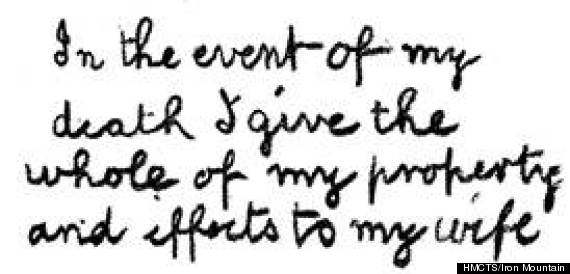 In the event of my
death I give the
whole of my property
and effects to my wife
HMCTS/Iron Mountain